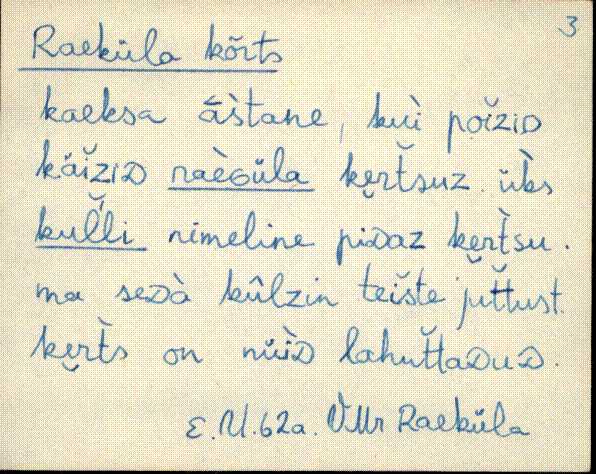 3
Raeküla kõrts
kaeksa ā̀stane, kuì poĭzıᴅ
käĭzıᴅ raèGüla ke̮rt̆suz. ǜks
kul̆li nimeline piᴅaz ke̮rt̀su.
ma seᴅà kûlzin teiste jut̆tust.
ke̮rt̀s on nüìᴅ lahut̆taᴅuᴅ.
E.U.62a. VMr Raeküla